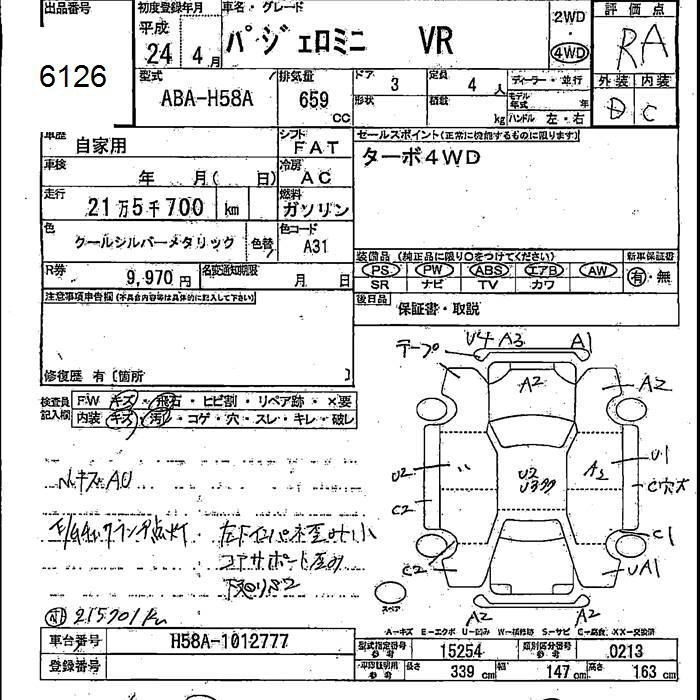 出品番号 初度登録年月 車名・グレード 2WD 評価点
6126 平成 24年 4月 パジェロミニ VR ・ 4WD RA
型式 排気量 ドア 3 定員 4人 ディーラー・並行 外装 内装
ABA-H58A 659 CC 形状 積載 kg モデル年式 年 D C
ハンドル 左・右
車歴 自家用 シフト FAT セールスポイント(正常に機能するものに限ります)
車検 年 月( 日) 冷房 AC ターボ4WD
走行 21万5千700 km 燃料 ガソリン
色 クールシルバーメタリック 色替 色コード A31
装備品 (純正品に限り○をつけてください) 新車保証書
R券 9,970円 名変通知期限 月 日 PS PW ABS エアB AW 有・無
SR ナビ TV カワ
注意事項申告欄(不具合内容等は具体的に記入して下さい) 後日品 保証書・取説
修復歴 有〔箇所 〕
検査員記入欄 FW キズ・飛石・ヒビ割・リペア跡・×要
内装 キズ・汚れ・コゲ・穴・スレ・キレ・破レ
テープ U4 A3 A1
A2 A2
U2 U2 A2 U1
C穴大
C2 C1
C2 UA1
A2 A2
スペア
E/Gチェックランプ点灯
下廻りS2
215701km
A-キズ E-エクボ U-凹み W-補修跡 S-サビ C-腐食 XX-交換済
車台番号 H58A-1012777 型式指定番号 参考 15254 類別区分番号 参考 0213
登録番号 長さ 339 cm 幅 147 cm 高さ 163 cm